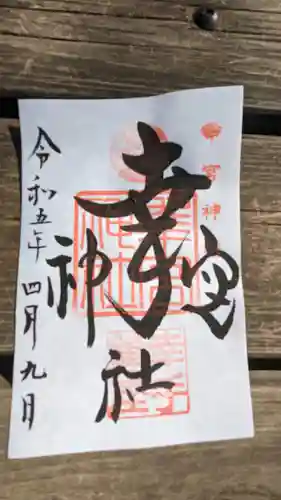 幸宮神社
令和五年四月九日
宮神